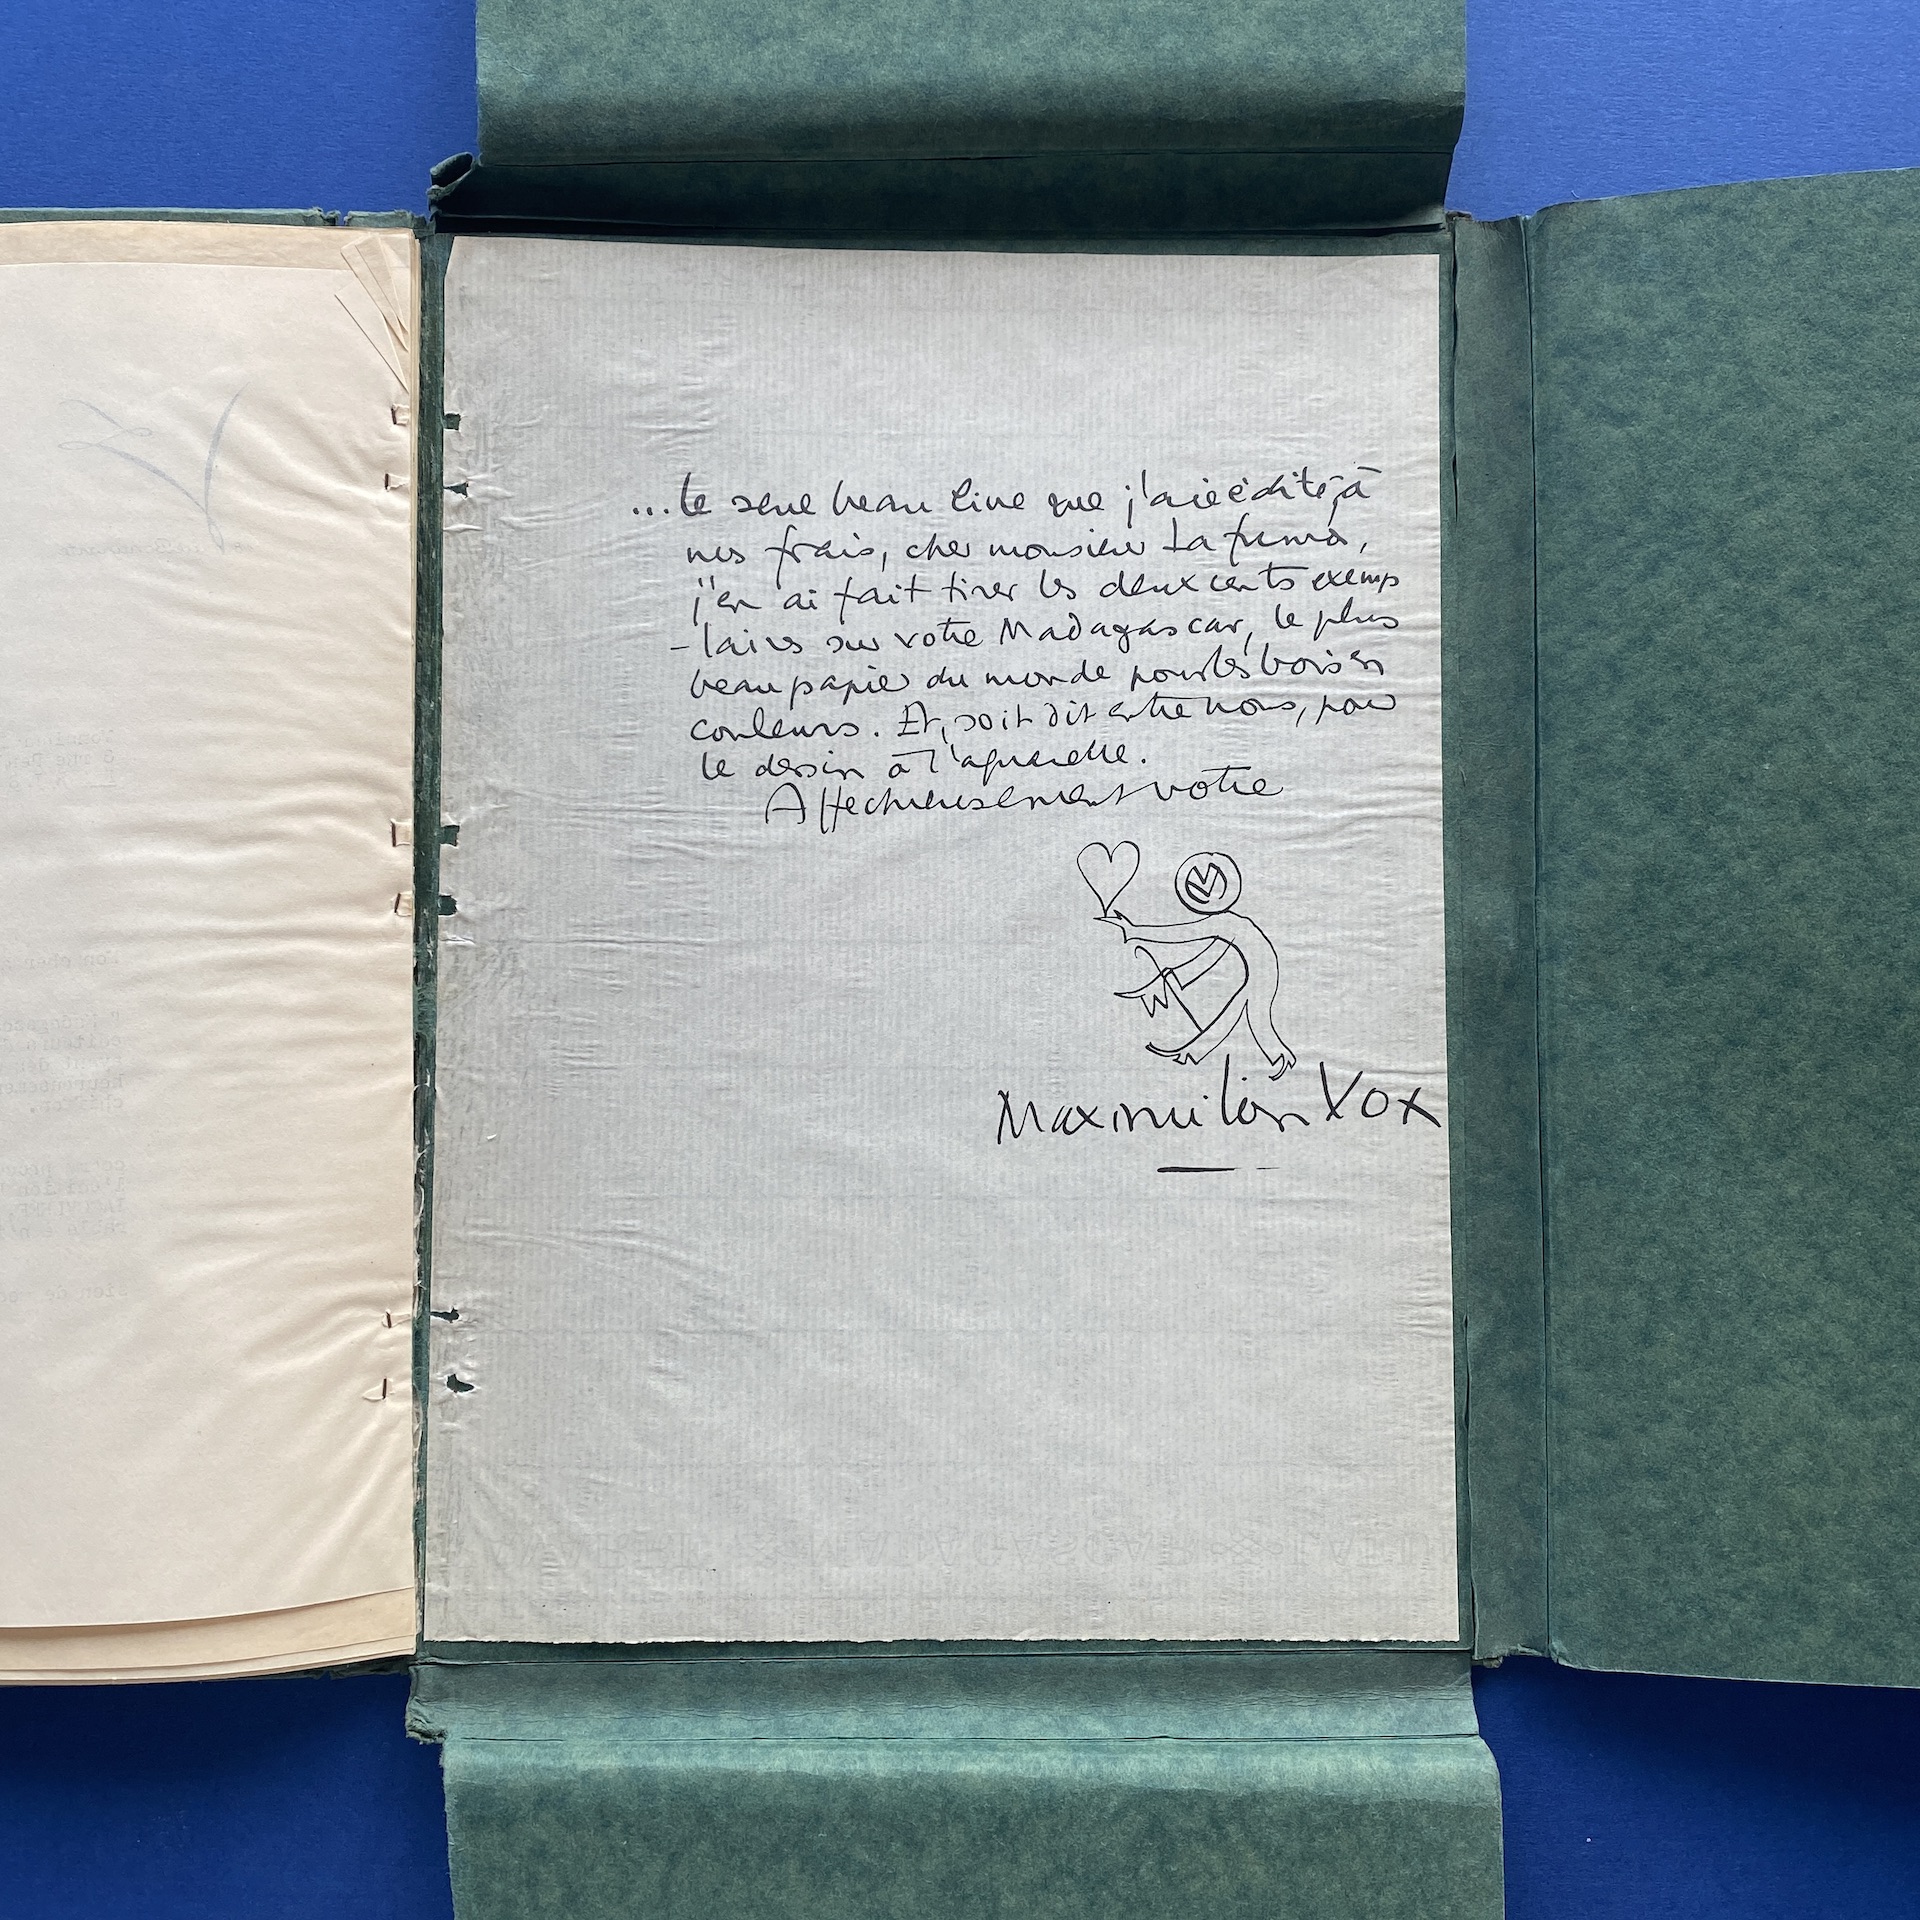 ...le seul beau livre que j'aie édité à
mes frais, cher monsieur Lafuma,
j'en ai fait tirer les deux cents exemp
-laires sur votre Madagascar, le plus
beau papier du monde pour les bois en
couleurs. Et, soit dit entre nous, pour
le dessin à l'aquarelle.
Affectueusement votre
Maximilien Vox
NAVARRE MADAGASCAR LAFU